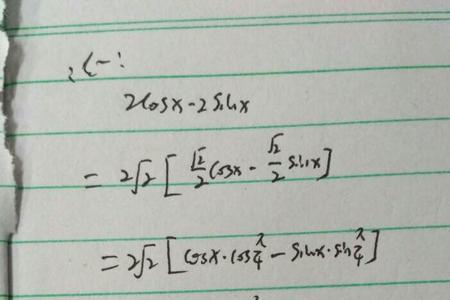 2cosx-2sinx
= 2√2 [ √2/2 cosx - √2/2 sinx ]
= 2√2 [ cosx·cos π/4 - sinx·sin π/4 ]